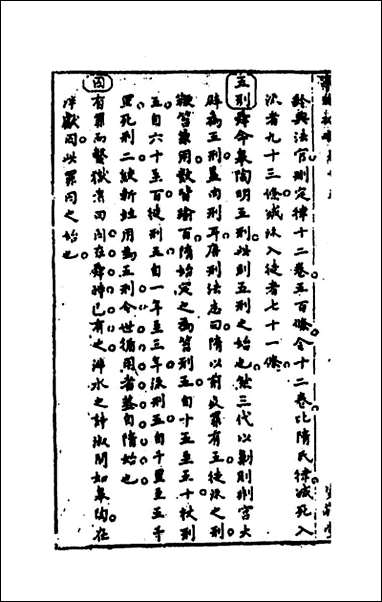 齡與法官刪定律十二卷五百條令十二卷比隋氏律減死入
流者九十三條減流入徒者七十一條
五刑舜命皋陶明五刑以則五刑之始也然三代以劓剕宮大
辟為五刑蓋肉刑耳唐刑法志曰隋以前及罪有五徒流之刑
鞭笞兼用數皆踰百隋始定之為笞刑五自十五至五十杖刑
五自六十至百徒刑五自一年至三年流刑五自千里至五千
里死刑二絞斬祖用為五刑今世循用者蓋自隋始也
囚有罪而繫獄者曰囚在舜時已有之泮水之詩淑問如皋陶在
泮獻囚此罪囚之始也